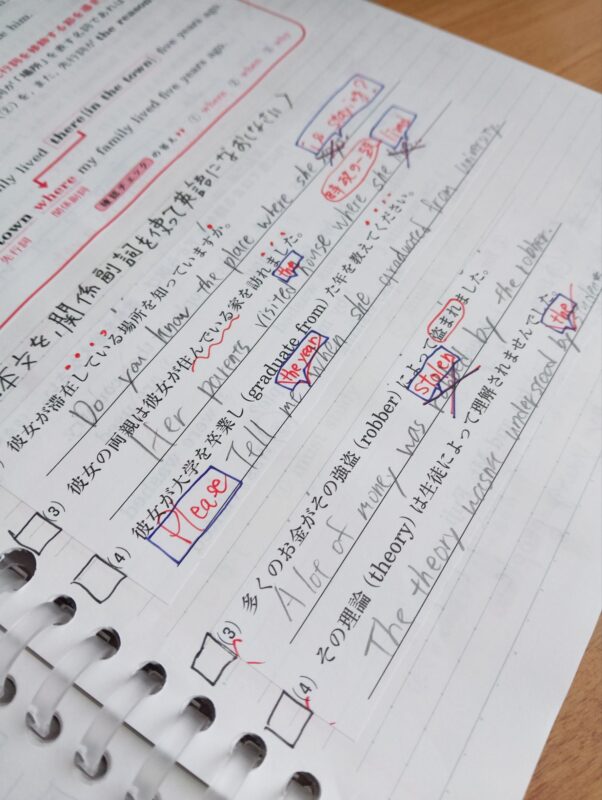 five years ago.
ily lived there(in the town) five years ago.
town where my family lived five years ago.
先行詞 関係副詞
確認チェック の答え ① where ② when ③ why
本文を関係副詞を使って英語になおしなさい〉
彼女が滞在している場所を知っていますか。
is staying?
Do you know the place where she
(3) 彼女の両親は彼女が住んでいる家を訪れました。
時制の一致
the
lived
Her parents visited house where she
(4) 彼女が大学を卒業し (graduate from) た年を教えてください。
Please
the year
Tell me when she graduated from university.
(3) 多くのお金がその強盗 (robber) によって盗まれました。
stolen
A lot of money was by the robber.
(4) その理論 (theory) は生徒によって理解されませんでした。
the
The theory wasn't understood by